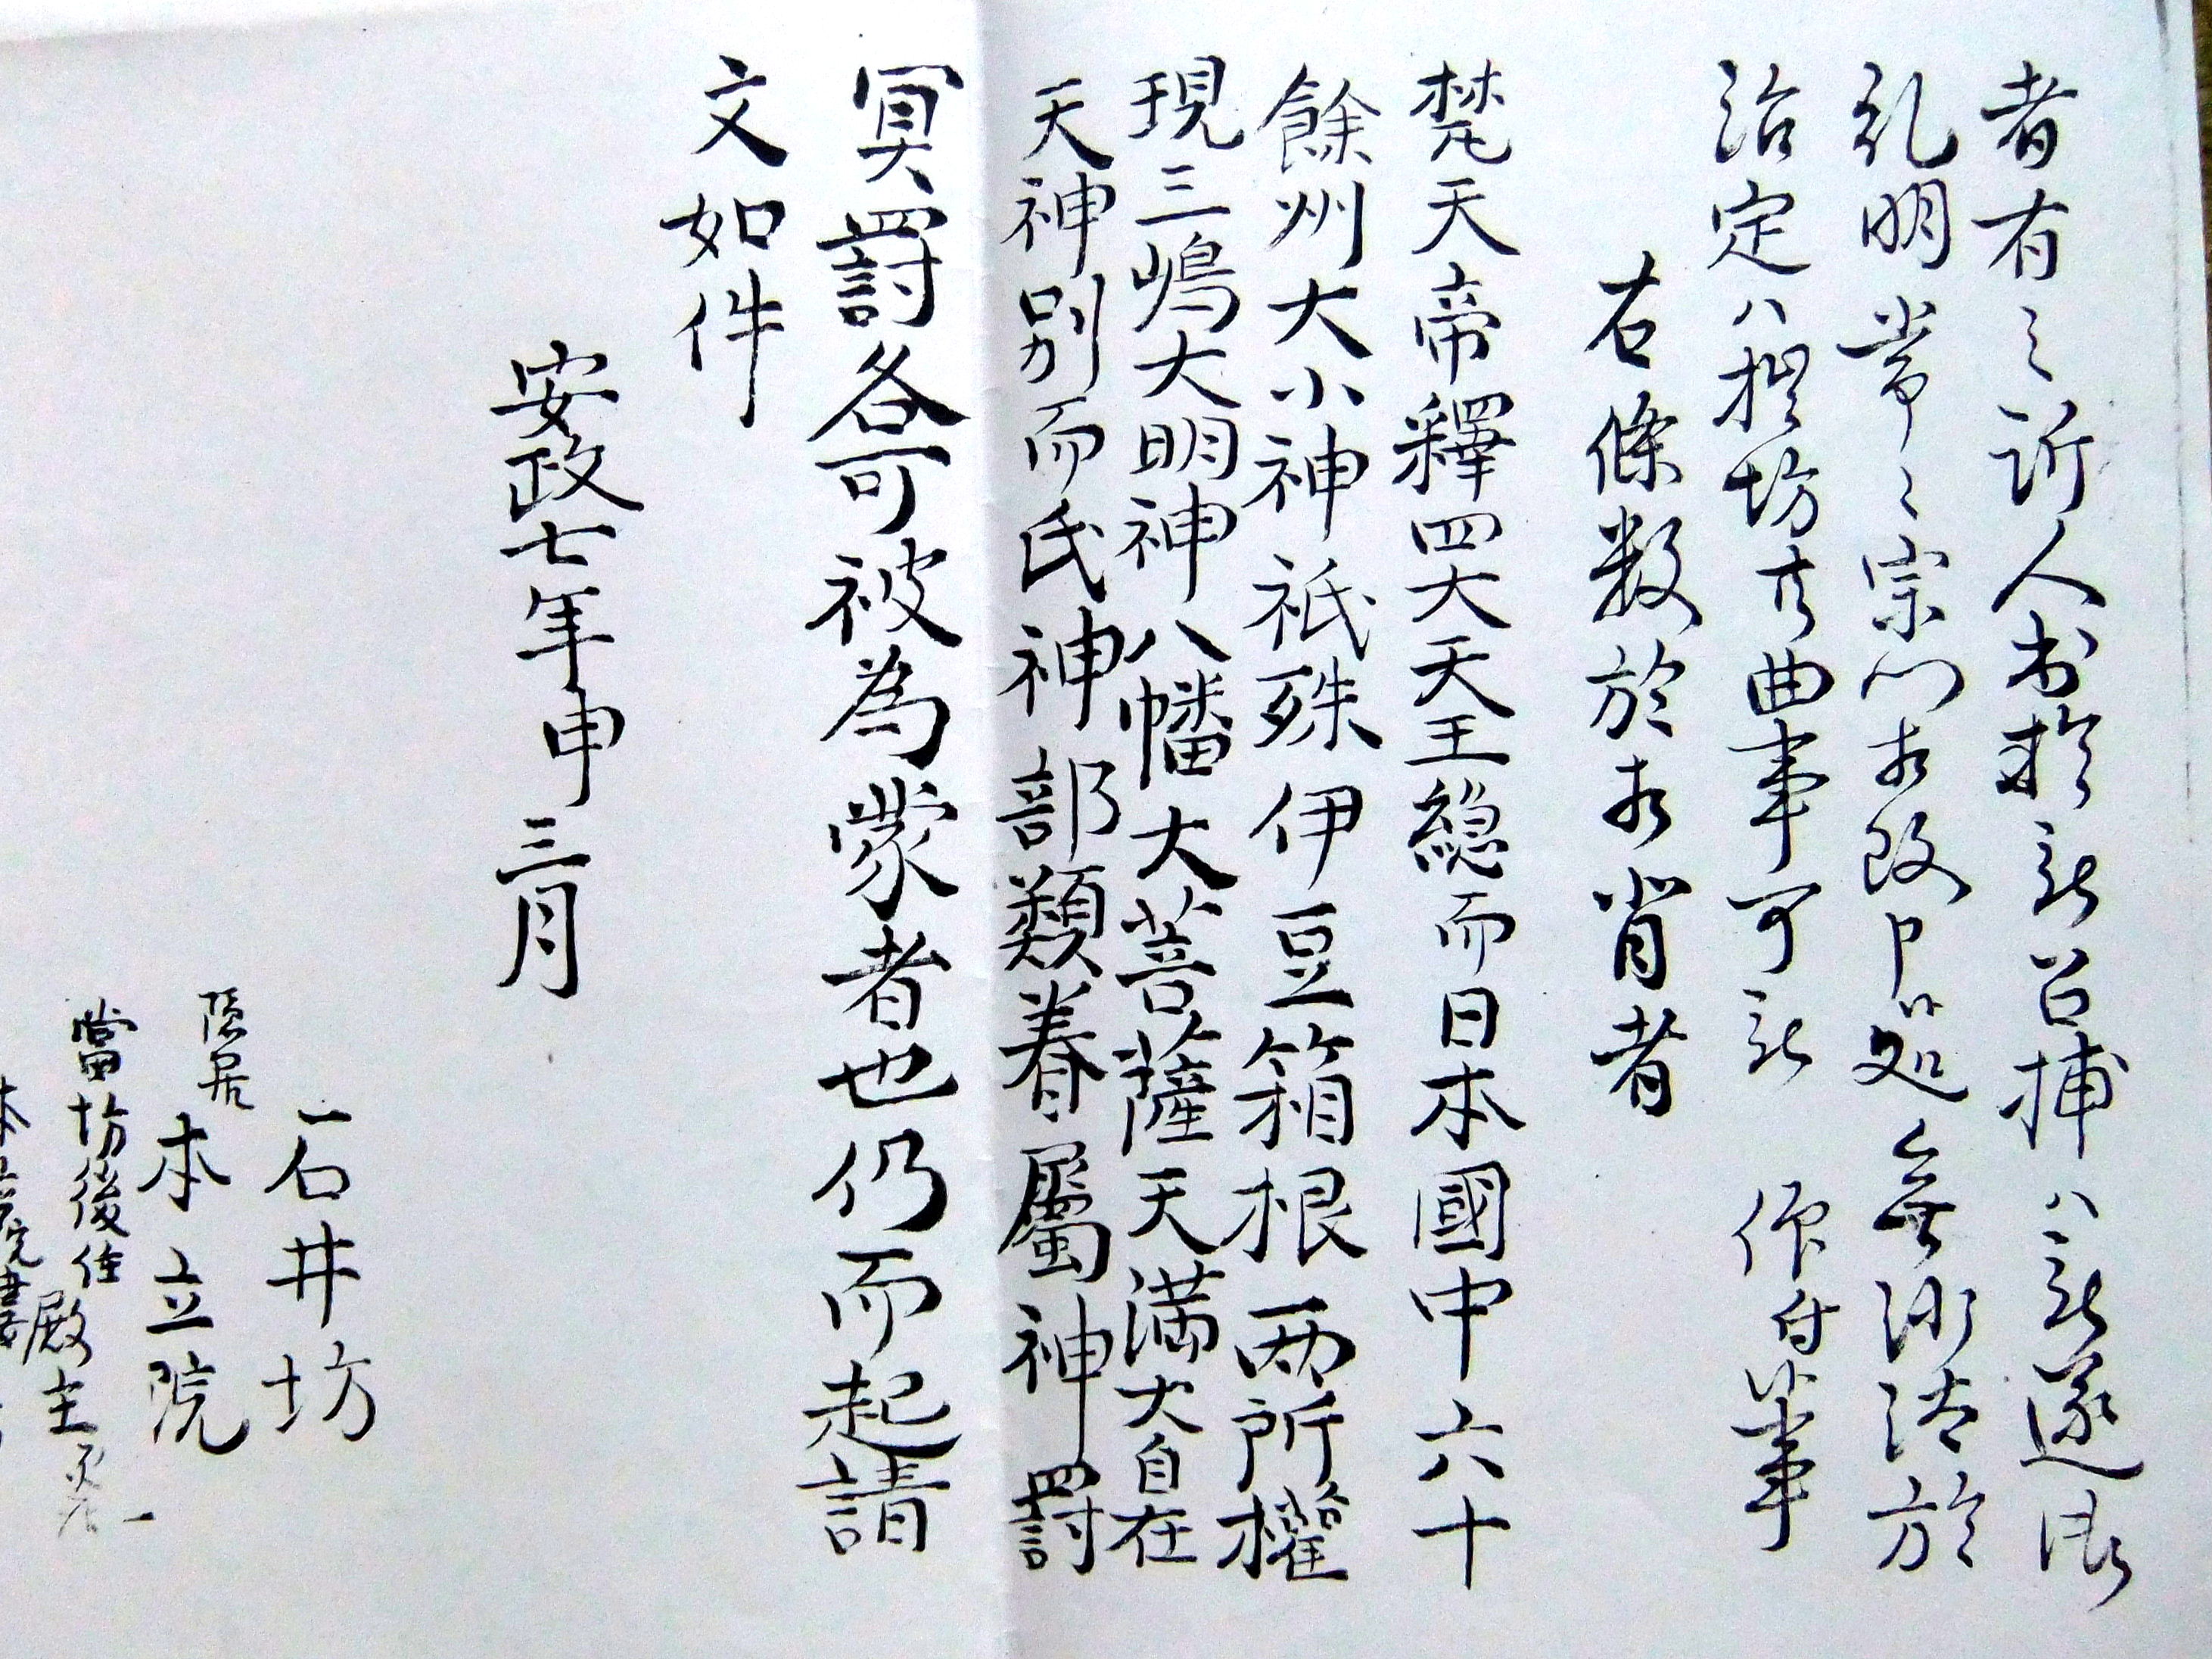 者有之訴人出於被召捕ハ被遂御
糺明常々宗門相改申処無沙汰於
治定ハ拙坊共曲事可被 仰付事
右條数於相背者
梵天帝釋四大天王総而日本國中六十
餘州大小神祇殊伊豆箱根両所權
現三嶋大明神八幡大菩薩天満大自在
天神別而氏神部類眷屬神罰
冥罰各可被為蒙者也仍而起請
文如件
安政七年申三月
石井坊
隠居
本立院
當坊後住
殿主